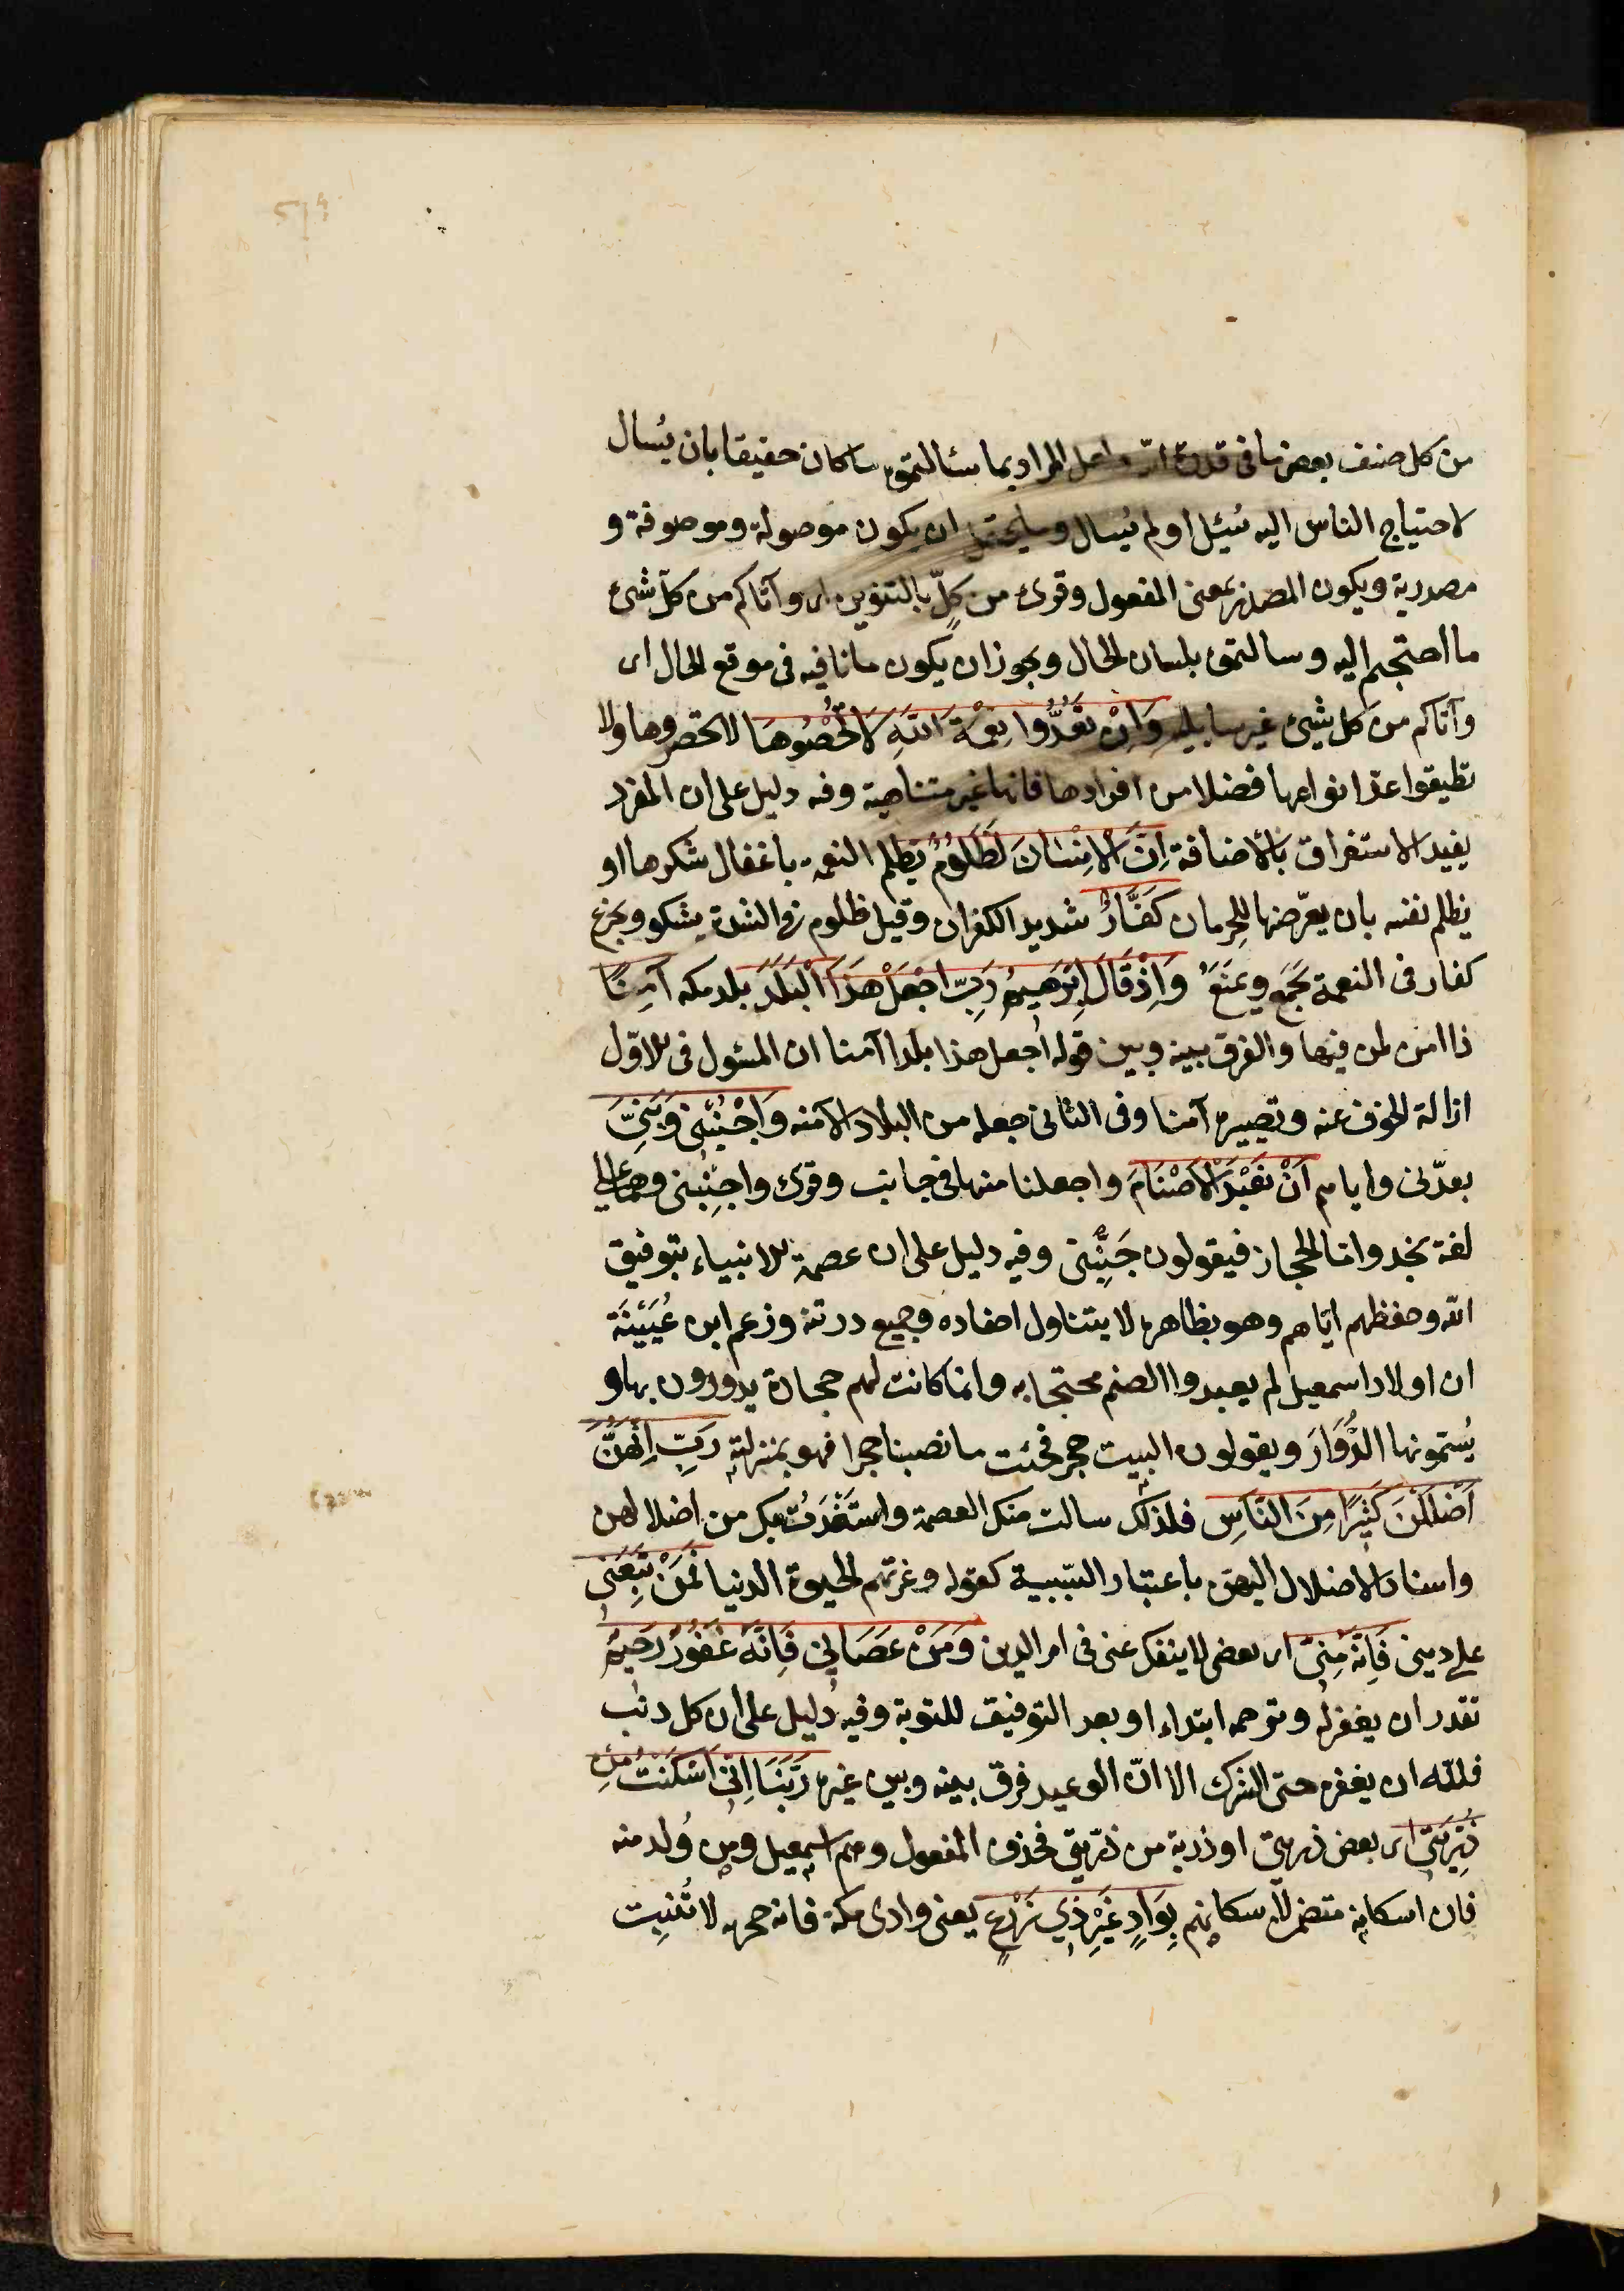 من كل صنف بعض ما فى قدرة الله ولعل المراد بما سئالتموه ما كان حقيقا بان يُسال
لاحتياج الناس اليه سُئِل او لم يُسال وما يحتمل ان يكون موصولة وموصوفة و
مصدرية ويكون المصدر بمعنى المفعول وقرئ من كلٍّ بالتنوين اى وآتاكم من كل شئ
ما احتجتم اليه وسالتموه بلسان الحال ويجوز ان يكون ما نافيه فى موقع الحال اى
وآتاكم من كل شئ غير سايليه وَاِنْ تَعُدُّوا نِعْمَةَ اللّهِ لَا تُحْصُوهَا لا تحصروها ولا
تطيقوا عدّ انواعها فضلا من افرادها فانها غير متناهية وفه دليل على ان المفرد
يفيد الاستغراق بالاضافة اِنَّ الْاِنْسَانَ لَظَلُومٌ يظلم النعمة باغفال شكرها او
يظلم نفسه بان يعرّضها للحِرمان كَفَّارٌ شديد الكفران وقيل ظلوم فى الشدة يشكو ويجزع
كفار فى النعمة يَجْمَع ويَمنَعُ وَاِذْ قَالَ اِبْرَهِيمُ رَبِّ اجْعَلْ هَذَا الْبَلَدَ بلد مكه آمِنًا
ذا امن لمن فيها والفرق بينه وبين قوله اجعل هذا بلدا آمنا ان المسئول فى الاوّل
ازالة الخوف عنه وتصييره آمنا وفى الثانى جعله من البلاد الآمنه وَاجْنُبْنِى وَبَنِىَّ
بعدّنى واياهم اَنْ نَعْبُدَ الْاَصْنَامَ واجعلنا منها فى جانب وقرئ واجنِبْنى وهما على
لغة نجد واما الحجاز فيقولون جَنِّبْنى وفيه دليل على ان عصمة الانبياء بتوفيق
الله وحفظهم ايّاهم وهو بظاهره لا يتناول احفاده وجميع درته وزعم ابن عُيَيْنَة
ان اولاد اسمعيل لم يعبدوا الصنم محتجا به وانما كانت لهم حجارة يدورون بها و
يُسمّونها الدُّوَارَ ويقولون البيت حجر فحيثما نصبنا حجرا فهو بمنزلته رَبِّ اِنَّهُنَّ
اَضْلَلْنَ كَثِيرًا مِنَ النَّاسِ فلذلك سالت منك العصمة واستَعَذتُ بك من اضلالهن
واسناد الاضلال اليهنّ باعتبار السّببية كقوله وغرتهم الحيوة الدنيا فَمَنْ تَبِعَنِى
على دينى فَاِنَّهُ مِنِّى اى بعضى لا ينفك عنى فى امر الدين وَمَنْ عَصَانِى فَاِنَّهُ غَفُورٌ رَحِيمٌ
تقدر ان يغفر له وترحمه ابتداء او بعد التوفيق للتوبة وفيه دليل على ان كل ذنب
فللّه ان يغفره حتى الشرك الا انّ الوعيد فرق بينه وبين غيره رَبَّنَا اِنِّى اَسْكَنْتُ مِنْ
ذُرِّيَّتِى اى بعض ذريتى او ذرية من ذرّيتى فحذف المفعول وهم اسمعيل ومن وُلد منه
فان اسكانه متضمن لاسكانهم بِوَادٍ غَيْرِ ذِي زَرْعٍ يعنى وادى مكة فانه حجريه لا تُنبِت